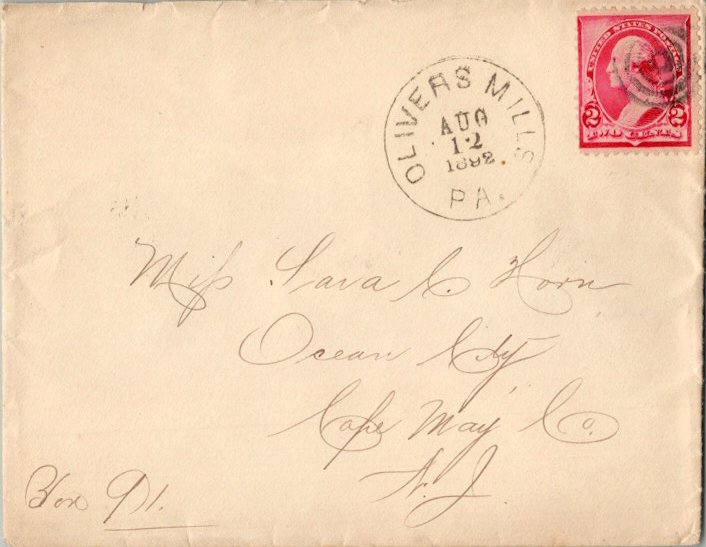 OLIVERS MILLS
AUG
12
1892.
PA.
UNITED STATES POSTAGE
2 2
TWO CENTS
Miss Sara C. Horn
Ocean City
Cape May Co.
N. J.
Box 91.